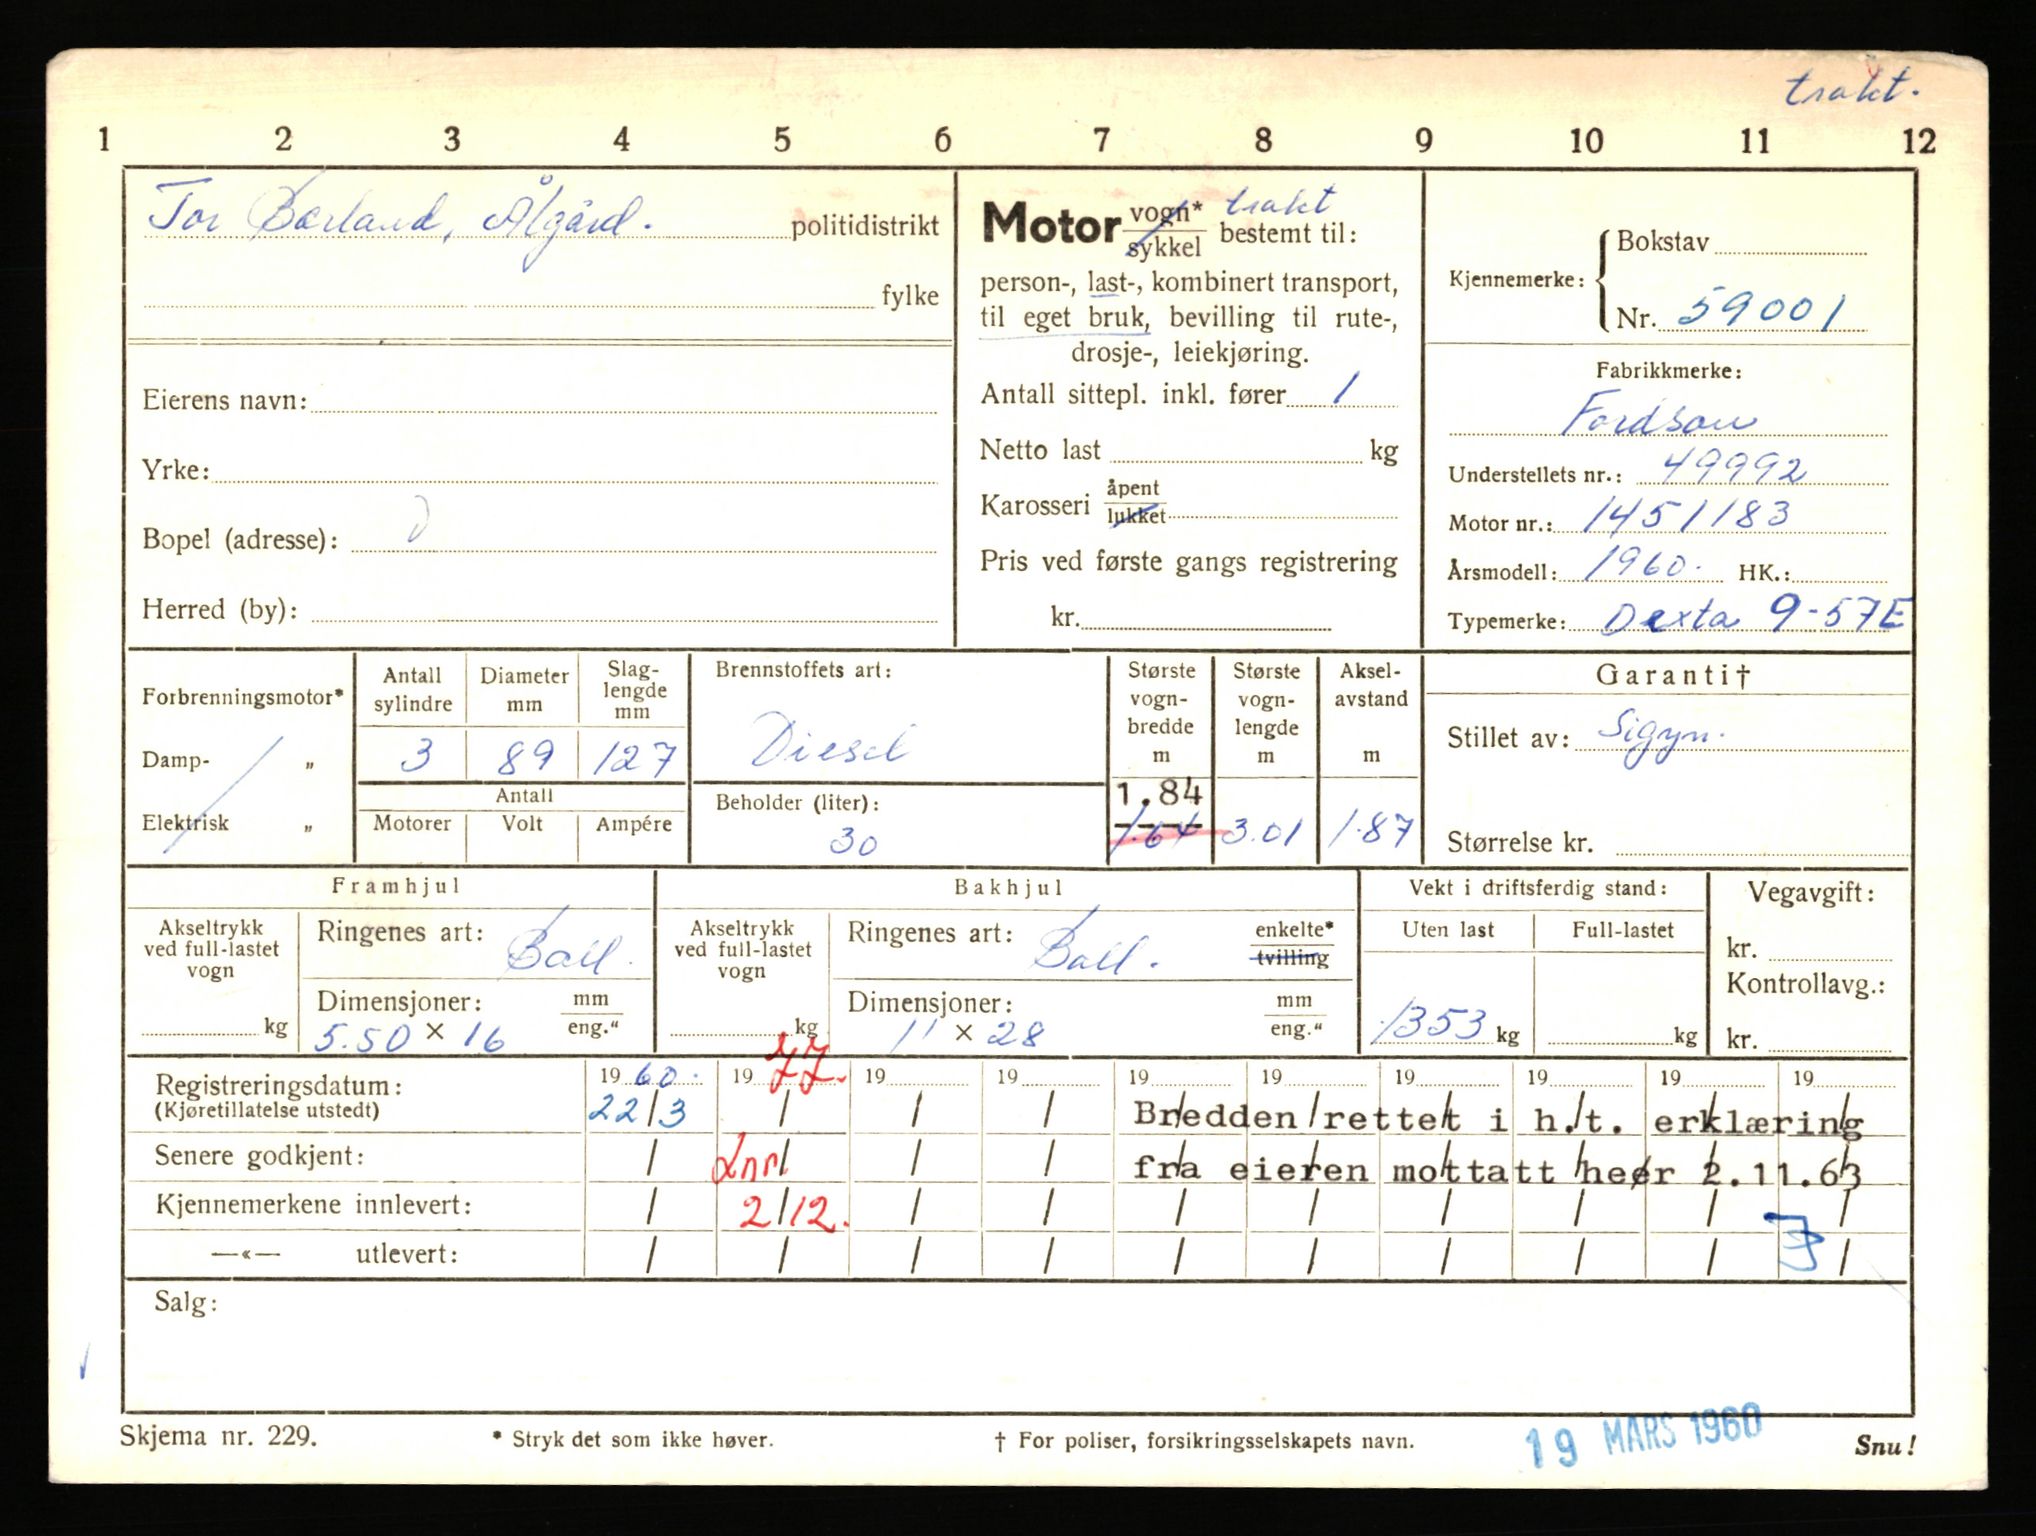 trakt.
1 2 3 4 5 6 7 8 9 10 11 12
Tor Bærland, Ålgård. politidistrikt
fylke
Eierens navn:
Yrke:
Bopel (adresse):
Herred (by):
Motor vogn* trakt
sykkel bestemt til:
person-, last-, kombinert transport,
til eget bruk, bevilling til rute-,
drosje-, leiekjøring.
Antall sittepl. inkl. fører 1
Netto last kg
Karosseri åpent
lukket
Pris ved første gangs registrering
kr.
Kjennemerke: Bokstav
Nr. 59001
Fabrikkmerke:
Fordson
Understellets nr.: 49992
Motor nr.: 1451183
Årsmodell: 1960. HK.:
Typemerke: Dexta 9-57E
Forbrenningsmotor*
Damp- „
Elektrisk „
Antall sylindre Diameter mm Slag-lengde mm
3 89 127
Antall
Motorer Volt Ampére
Brennstoffets art:
Diesel
Beholder (liter):
30
Største vogn-bredde m
1.84
1.64
Største vogn-lengde m
3.01
Aksel-avstand m
1.87
Garanti†
Stillet av: Sigyn.
Størrelse kr.
Framhjul
Akseltrykk ved full-lastet vogn
kg
Ringenes art: Ball.
Dimensjoner: mm
5.50 × 16 eng."
Bakhjul
Akseltrykk ved full-lastet vogn
kg
Ringenes art: Ball. enkelte*
tvilling
Dimensjoner: mm
11 × 28 eng."
Vekt i driftsferdig stand:
Uten last Full-lastet
1353 kg kg
Vegavgift:
kr.
Kontrollavg.:
kr.
Registreringsdatum: 19 60. 19 77. 19 19 19 19 19 19 19 19
(Kjøretillatelse utstedt) 22/3 / / / Bredden rettet i h.t. erklæring
Senere godkjent: / / / / fra eieren mottatt heer 2.11.63
Kjennemerkene innlevert: / 2/12. / / / / / / / /
—«— utlevert: / / / / / / / / / /
Salg:
Skjema nr. 229. * Stryk det som ikke høver. † For poliser, forsikringsselskapets navn. 19 MARS 1960 Snu!